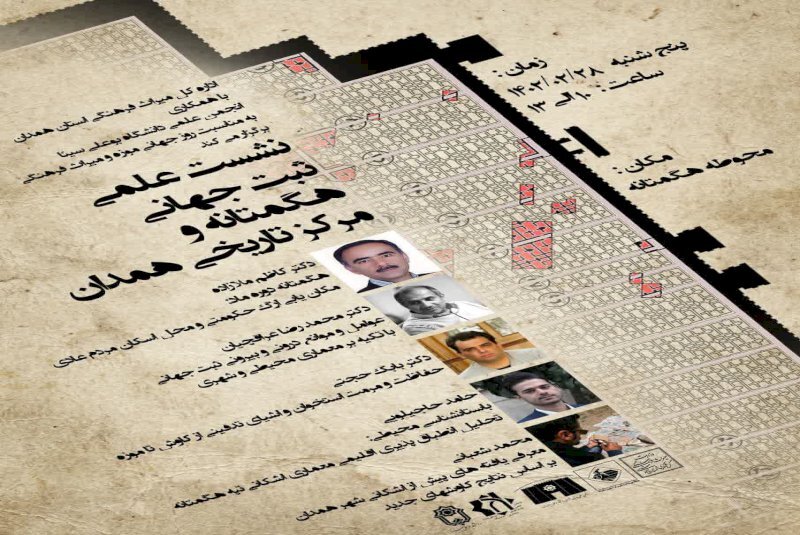 زمان:
پنج شنبه ۱۴۰۲/۰۲/۲۸
ساعت: ۱۰ الی ۱۳
مکان:
محوطه هگمتانه
اداره کل میراث فرهنگی استان همدان
با همکاری
انجمن علمی دانشگاه بوعلی سینا
به مناسبت روز جهانی موزه و میراث فرهنگی
برگزار می کند
نشست علمی
ثبت جهانی
هگمتانه و
مرکز تاریخی همدان
دکتر کاظم ملازاده
هگمتانه دوره ماد:
مکان یابی ارگ حکومتی و محل اسکان مردم عادی
دکتر محمد رضا عراقچیان
عوامل و موانع درونی و بیرونی ثبت جهانی
با تکیه بر معماری محیطی و شهری
دکتر بابک حجتی
حفاظت و مرمت استخوان و اشیای تدفینی از کاوش تا موزه
حامد حاجیلویی
باستانشناسی محیطی:
تحلیل انطباق پذیری اقلیمی معماری اشکانی تپه هگمتانه
محمد شعبانی
معرفی یافته های پیش از اشکانی شهر همدان
بر اساس نتایج کاوشهای جدید